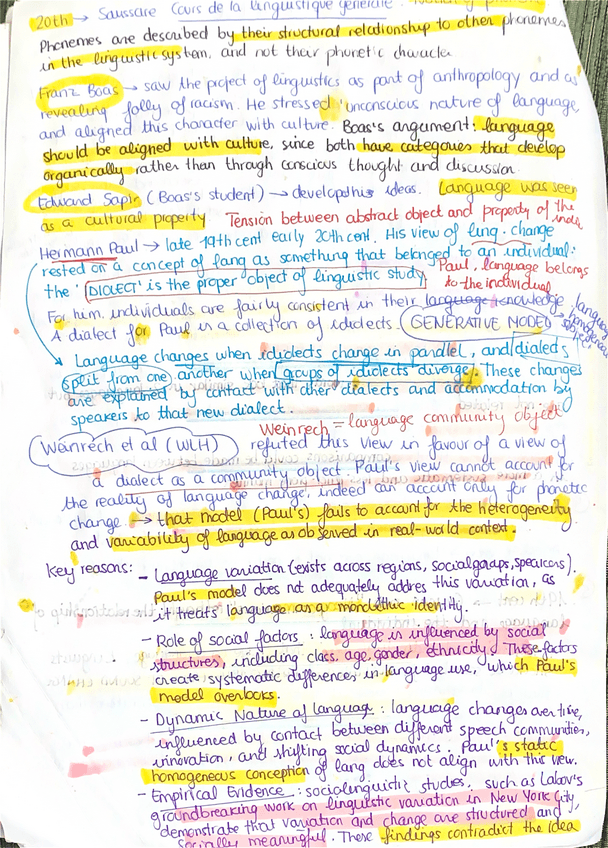 20th → Saussare Cours de la linguistique générale.
Phonemes are described by their structural relationship to other phonemes
in the linguistic system, and not their phonetic character
Franz Boas → saw the project of linguistics as part of anthropology and as
revealing folly of racism. He stressed unconscious nature of language,
and aligned this character with culture. Boas's argument: language
should be aligned with culture, since both have categories that develop
organically rather than through conscious thought and discussion.
Edward Sapir (Boas's student) → develop this ideas. Language was seen
as a cultural property Tension between abstract object and property of the
Hermann Paul → late 19th cent early 20th cent. His view of ling. change
rested on a concept of lang as something that belonged to an individual:
the 'DIOLECT' is the proper object of linguistic study. Paul, language belongs
to the individual
For him, individuals are fairly consistent in their language knowledge,
A dialect for Paul is a collection of idiolects. GENERATIVE MODEL
Language changes when idiolects change in parallel, and dialects
split from one another when groups of idiolects diverge. These changes
are explained by contact with other dialects and accomodation by
speakers to that new dialect.
Weinrech = language community object
Weinrech et al (WLH) refuted this view in favour of a view of
a dialect as a community object. Paul's view cannot account for
the reality of language change, indeed can account only for phonetic
change. → that model (Paul's) fails to account for the heterogeneity
and variability of language as observed in real-world context.
Key reasons: - Language variation (exists across regions, social groups, speakers).
Paul's model does not adequately addres this variation, as
it treats language as a monolithic identity.
- Role of social factors: language is influenced by social
structures, including class, age, gender, ethnicity. These factors
create systematic differences in language use, which Paul's
model overlooks.
- Dynamic Nature of language: language changes over time,
influenced by contact between different speech communities,
innovation, and shifting social dynamics. Paul's static
homogeneous conception of lang does not align with this view.
- Empirical Evidence: sociolinguistic studies, such as Labov's
groundbreaking work on linguistic variation in New York City,
demonstrate that variation and change are structured and
socially meaningful. These findings contradict the idea